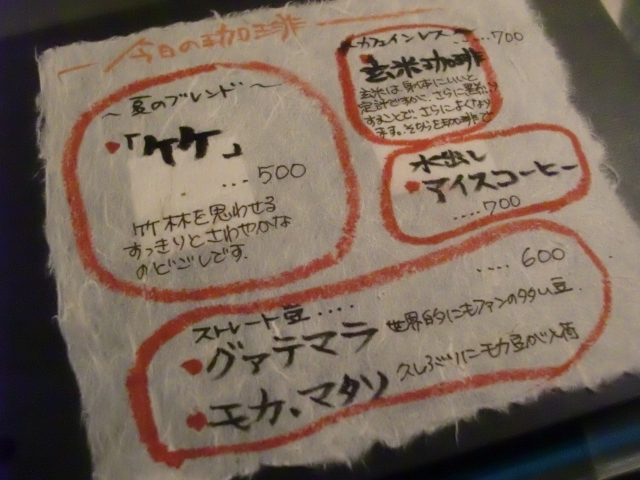 今日の珈琲
〜夏のブレンド〜
「竹」
...500
竹林を思わせる
すっきりとさわやかな
のどごしです。
カフェインレス
.....700
玄米珈琲
玄米は身体にいいと
ます。そんな玄米珈琲で
水出し
アイスコーヒー
....700
....600
ストレート豆....
グァテマラ 世界的にもファンの多い豆.
モカ、マタリ 久しぶりにモカ豆が入荷